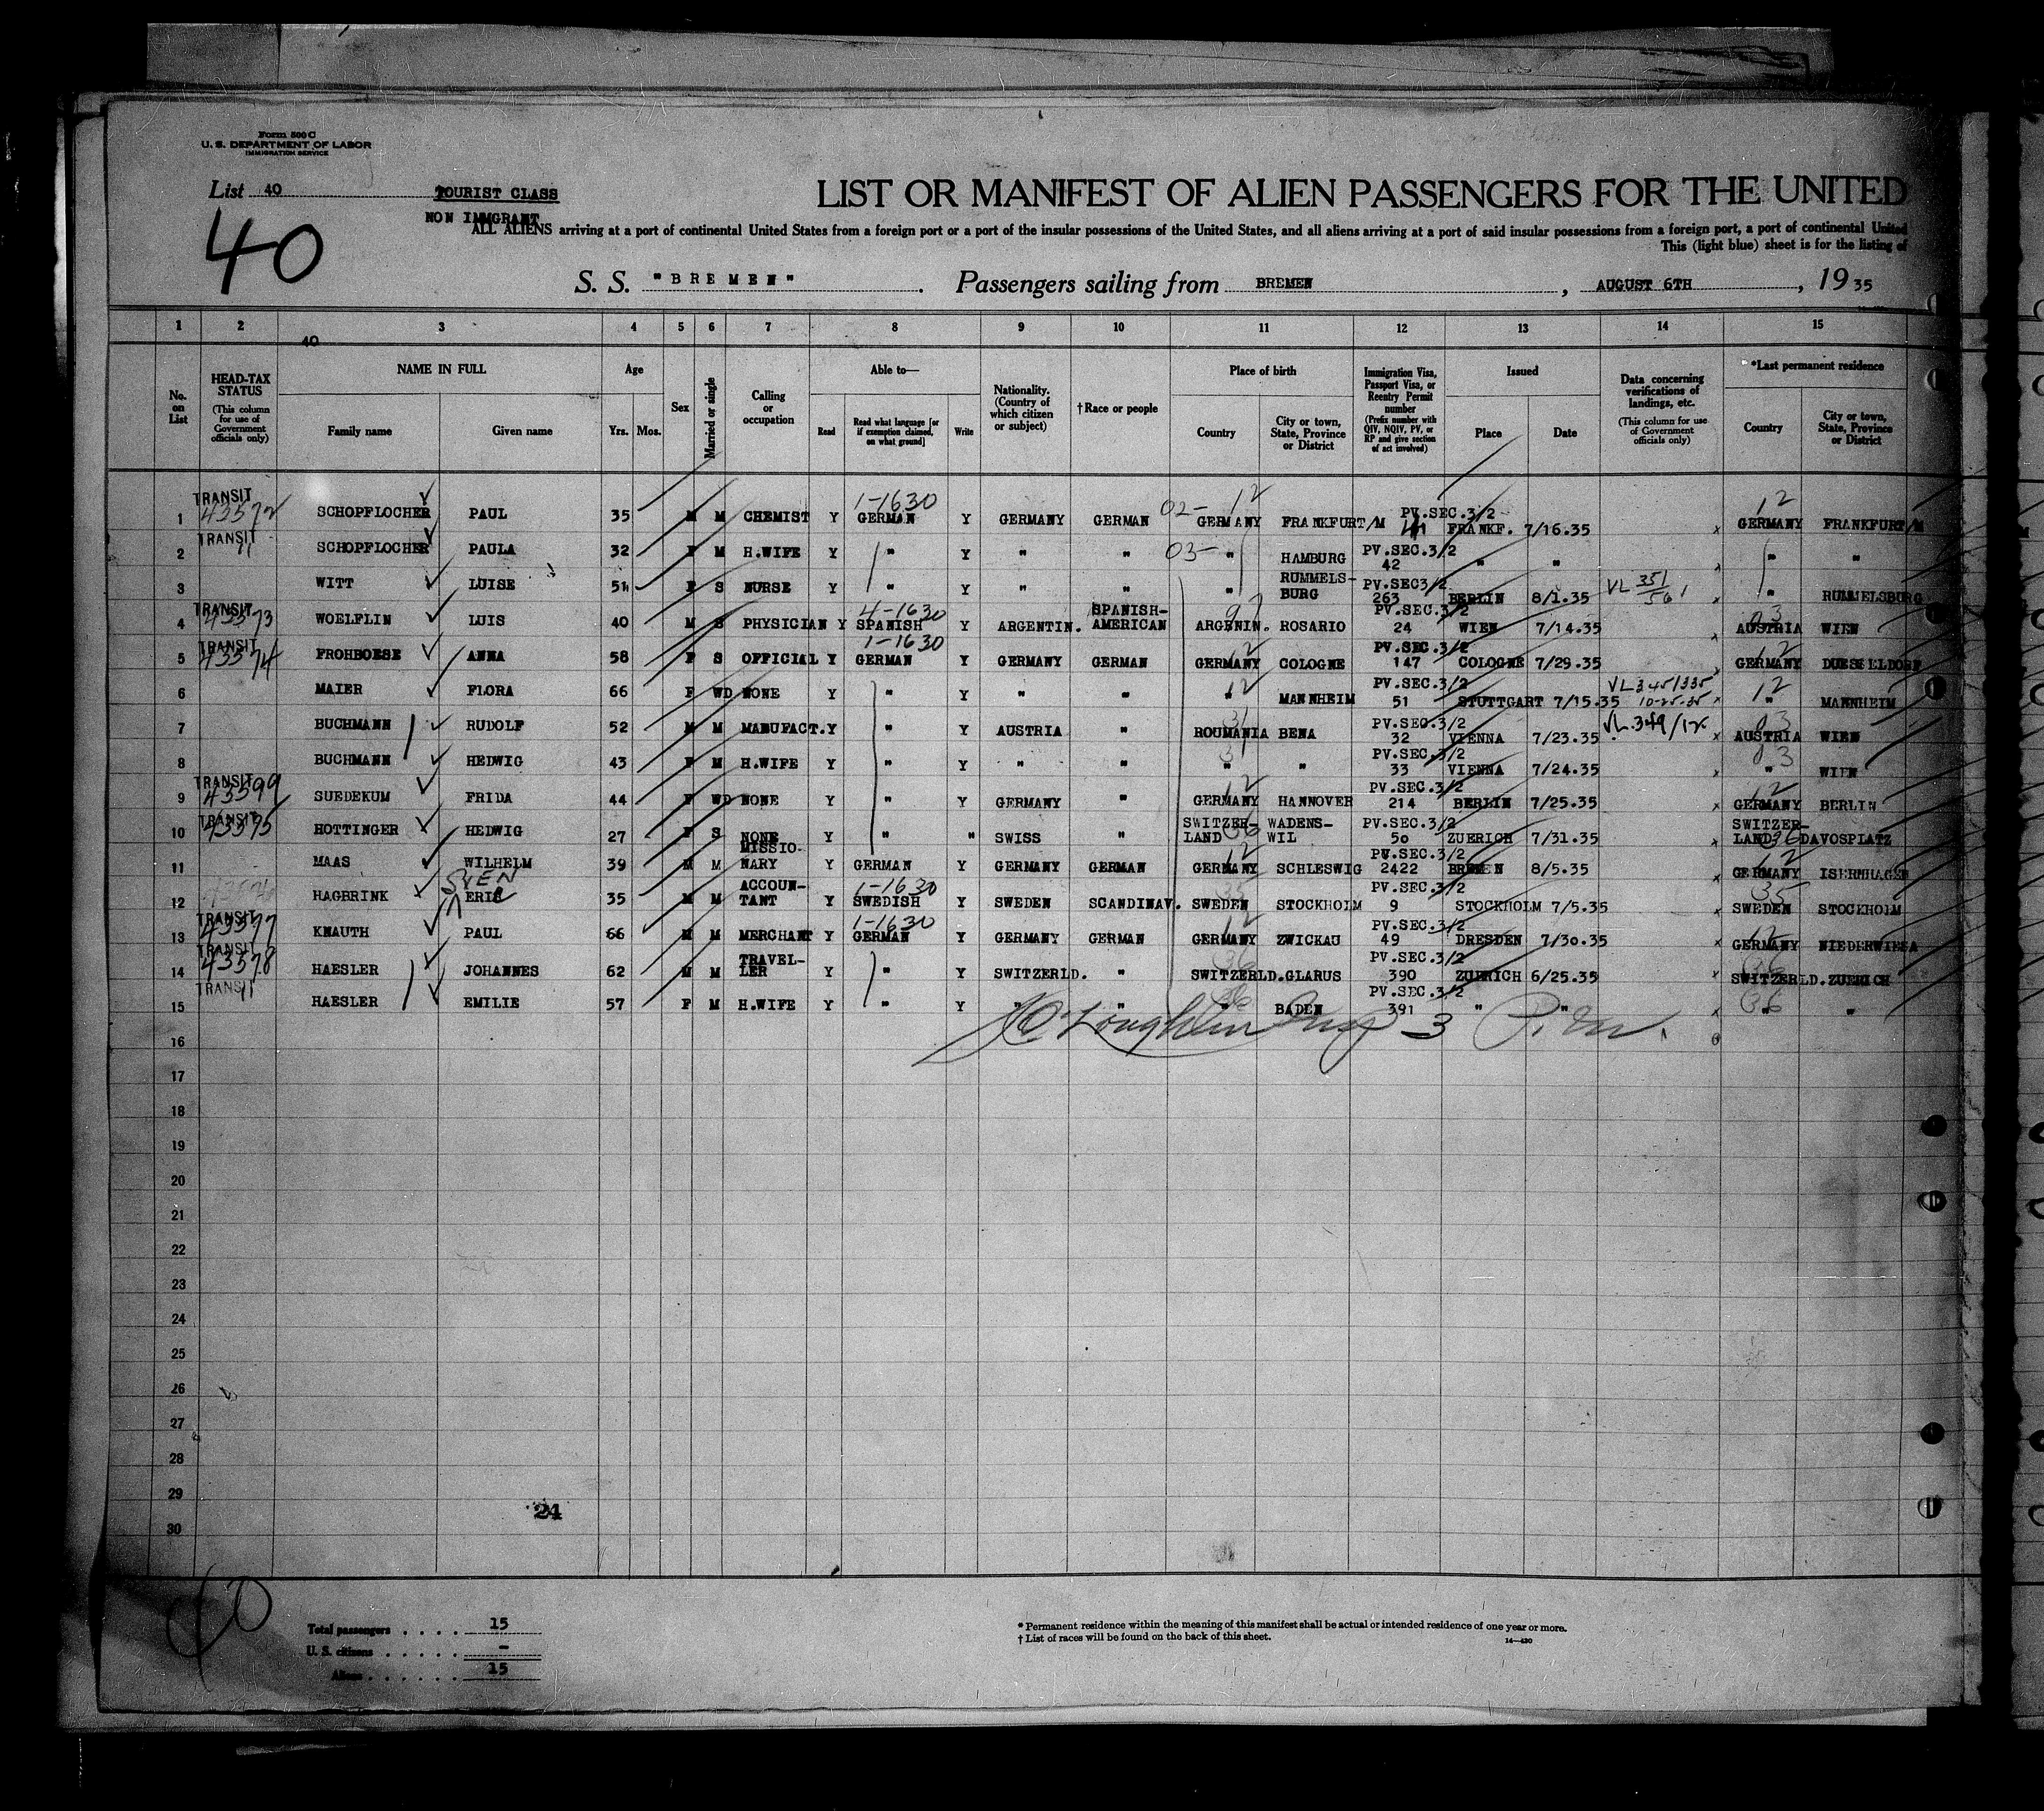 Form 500 C
U. S. DEPARTMENT OF LABOR
IMMIGRATION SERVICE
List 40
TOURIST CLASS
NON IMMGRANT
40
LIST OR MANIFEST OF ALIEN PASSENGERS FOR THE UNITED
ALL ALIENS arriving at a port of continental United States from a foreign port or a port of the insular possessions of the United States, and all aliens arriving at a port of said insular possessions from a foreign port, a port of continental United
This (light blue) sheet is for the listing of
S. S. "BREMEN". Passengers sailing from BREMEN, AUGUST 6TH, 19 35
1 2 3 4 5 6 7 8 9 10 11 12 13 14 15
40
No. on List
HEAD-TAX STATUS (This column for use of Government officials only)
NAME IN FULL
Family name Given name
Age
Yrs. Mos.
Sex
Married or single
Calling or occupation
Able to—
Read Read what language [or if exemption claimed, on what ground] Write
Nationality. (Country of which citizen or subject)
†Race or people
Place of birth
Country City or town, State, Province or District
Immigration Visa, Passport Visa, or Reentry Permit number (Prefix number with QIV, NQIV, PV, or RP and give section of act involved)
Issued
Place Date
Data concerning verifications of landings, etc. (This column for use of Government officials only)
*Last permanent residence
Country City or town, State, Province or District
1 TRANSIT 43572 SCHOPFLOCHER PAUL 35 M M CHEMIST Y 1-1630 GERMAN Y GERMANY GERMAN 02- 12 GERMANY FRANKFURT/M PV.SEC.3/2 FRANKF. 7/16.35 x 12 GERMANY FRANKFURT/M
2 TRANSIT " SCHOPFLOCHER PAULA 32 F M H.WIFE Y " Y " " 03- " HAMBURG PV.SEC.3/2 42 " " x " "
3 WITT LUISE 51 F S NURSE Y " Y " " " RUMMELS-BURG PV.SEC3/2 263 BERLIN 8/1.35 VL 351/561 x " RUMMELSBURG
4 TRANSIT 43573 WOELFLIN LUIS 40 M S PHYSICIAN Y 4-1630 SPANISH Y ARGENTIN. SPANISH-AMERICAN ARGENIN. ROSARIO PV.SEC.3/2 24 WIEN 7/14.35 x 03 AUSTRIA WIEN
5 TRANSIT 43574 FROHBOESE ANNA 58 F S OFFICIAL Y 1-1630 GERMAN Y GERMANY GERMAN 12 GERMANY COLOGNE PV.SEC.3/2 147 COLOGNE 7/29.35 x 12 GERMANY DUESSELDORF
6 MAIER FLORA 66 F WD NONE Y " Y " " 12 " MANNHEIM PV.SEC.3/2 51 STUTTGART 7/15.35 VL 345/335 10-25-35 x 12 " MANNHEIM
7 BUCHMANN RUDOLF 52 M M MANUFACT. Y " Y AUSTRIA " 31 ROUMANIA BENA PV.SEC.3/2 32 VIENNA 7/23.35 VL.349/12 x 03 AUSTRIA WIEN
8 BUCHMANN HEDWIG 43 F M H.WIFE Y " Y " " 31 " " PV.SEC.3/2 33 VIENNA 7/24.35 x 03 " WIEN
9 TRANSIT 43599 SUEDEKUM FRIDA 44 F WD NONE Y " Y GERMANY " 12 GERMANY HANNOVER PV.SEC.3/2 214 BERLIN 7/25.35 x 12 GERMANY BERLIN
10 TRANSIT 43575 HOTTINGER HEDWIG 27 F S NONE Y " " SWISS " SWITZER-LAND 36 WADENS-WIL PV.SEC.3/2 50 ZUERICH 7/31.35 x SWITZER-LAND 36 DAVOSPLATZ
11 MAAS WILHELM 39 M M MISSIO-NARY Y GERMAN Y GERMANY GERMAN 12 GERMANY SCHLESWIG PV.SEC.3/2 2422 BREMEN 8/5.35 x 12 GERMANY ISERNHAGEN
12 HAGBRINK SVEN ERIC 35 M M ACCOUN-TANT Y 1-1630 SWEDISH Y SWEDEN SCANDINAV. 35 SWEDEN STOCKHOLM PV.SEC.3/2 9 STOCKHOLM 7/5.35 x 35 SWEDEN STOCKHOLM
13 TRANSIT 43577 KNAUTH PAUL 66 M M MERCHANT Y 1-1630 GERMAN Y GERMANY GERMAN 12 GERMANY ZWICKAU PV.SEC.3/2 49 DRESDEN 7/30.35 x 12 GERMANY NIEDERWIESA
14 TRANSIT 43578 HAESLER JOHANNES 62 M M TRAVEL-LER Y " Y SWITZERLD. " 36 SWITZERLD. GLARUS PV.SEC.3/2 390 ZUERICH 6/25.35 x 36 SWITZERLD. ZUERICH
15 TRANSIT " HAESLER EMILIE 57 F M H.WIFE Y " Y " " 36 " BADEN PV.SEC.3/2 391 " " x 36 " "
16
17
18
19
20
21
22
23
24
25
26
27
28
29
30
24
Total passengers . . . . 15
U. S. citizens . . . . . –
Aliens . . . . . . 15
* Permanent residence within the meaning of this manifest shall be actual or intended residence of one year or more.
† List of races will be found on the back of this sheet. 14—430